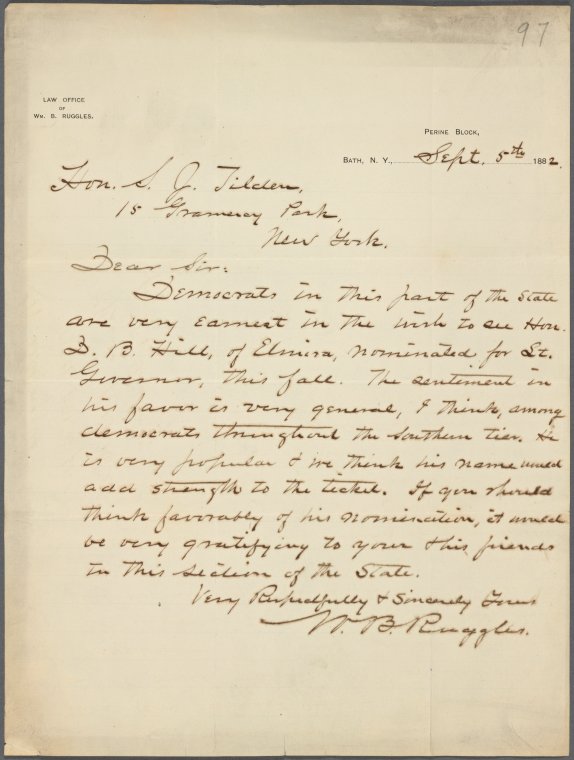 97
LAW OFFICE
OF
WM. B. RUGGLES.
PERINE BLOCK,
BATH, N. Y., Sept. 5th 1882.
Hon. S. J. Tilden,
15 Gramercy Park,
New York.
Dear Sir:
Democrats in this part of the State
are very earnest in the wish to see Hon.
D. B. Hill, of Elmira, nominated for Lt.
Governor, this fall. The sentiment in
his favor is very general, I think, among
democrats throughout the Southern tier. He
is very popular & we think his name would
add strength to the ticket. If you should
think favorably of his nomination, it would
be very gratifying to your & his friends
in this section of the State.
Very Respectfully & Sincerely Yours
W. B. Ruggles.